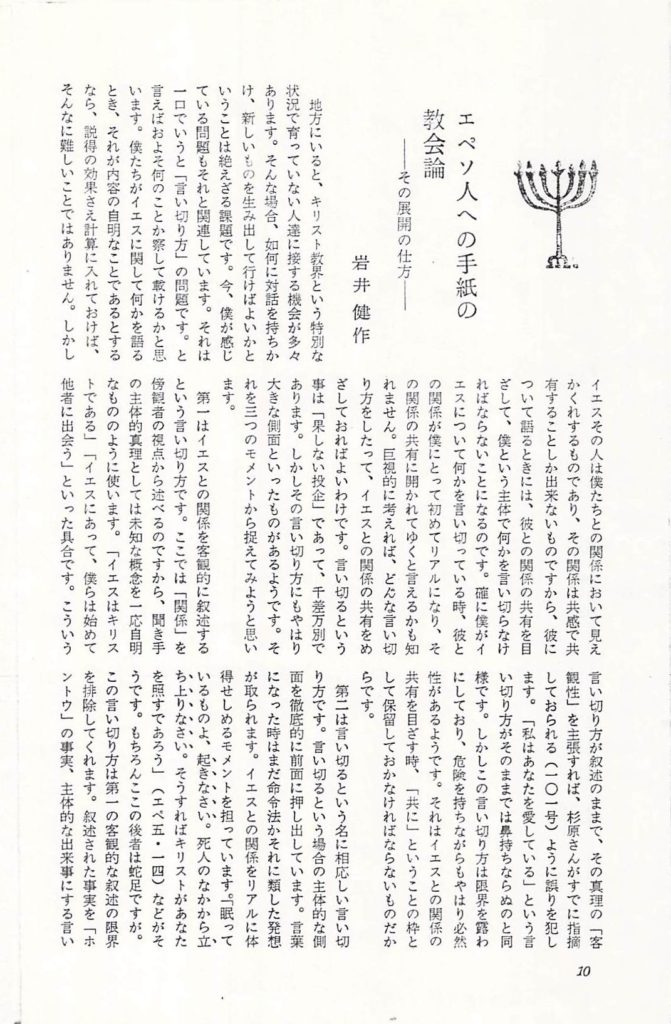 エペソ人への手紙の
教会論
――その展開の仕方――
岩井健作
地方にいると、キリスト教界という特別な
状況で育っていない人達に接する機会が多々
あります。そんな場合、如何に対話を持ちか
け、新しいものを生み出して行けばよいかと
いうことは絶えざる課題です。今、僕が感じ
ている問題もそれと関連しています。それは
一口でいうと「言い切り方」の問題です。と
言えばおよそ何のことか察して載けるかと思
います。僕たちがイエスに関して何かを語る
とき、それが内容の自明なことであるとする
なら、説得の効果さえ計算に入れておけば、
そんなに難しいことではありません。しかし
イエスその人は僕たちとの関係において見え
かくれするものであり、その関係は共感で共
有することしか出来ないものですから、彼に
ついて語るときには、彼との関係の共有を目
ざして、僕という主体で何かを言い切らなけ
ればならないことになるのです。確に僕がイ
エスについて何かを言い切っている時、彼と
の関係が僕にとって初めてリアルになり、そ
の関係の共有に開かれてゆくと言えるかも知
れません。巨視的に考えれば、どんな言い切
り方をしたって、イエスとの関係の共有をめ
ざしておればよいわけです。言い切るという
事は「果しない投企」であって、千差万別で
あります。しかしその言い切り方にもやはり
大きな側面といったものがあるようです。そ
れを三つのモメントから捉えてみようと思い
ます。
第一はイエスとの関係を客観的に叙述する
という言い切り方です。ここでは「関係」を
傍観者の視点から述べるのですから、聞き手
の主体的真理としては未知な概念を一応自明
なもののように使います。「イエスはキリス
トである」「イエスにあって、僕らは始めて
他者に出会う」といった具合です。こういう
言い切り方が叙述のままで、その真理の「客
観性」を主張すれば、杉原さんがすでに指摘
しておられる（一〇一号）ように誤りを犯し
ます。「私はあなたを愛している」という言
い切り方がそのままでは鼻持ちならぬのと同
様です。しかしこの言い切り方は限界を露わ
にしており、危険を持ちながらもやはり必然
性があるようです。それはイエスとの関係の
共有を目ざす時、「共に」ということの枠と
して保留しておかなければならないものだか
らです。
第二は言い切るという名に相応しい言い切
り方です。言い切るという場合の主体的な側
面を徹底的に前面に押し出しています。言葉
になった時はまだ命令法かそれに類した発想
が取られます。イエスとの関係をリアルに体
得せしめるモメントを担っています。「眠って
いるものよ、起きなさい。死人のなかから立
ち上りなさい。そうすればキリストがあなた
を照すであろう」（エペ五・一四）などがそ
うです。もちろんここの後者は蛇足ですが。
この言い切り方は第一の客観的な叙述の限界
を排除してくれます。叙述された事実を「ホ
ントウ」の事実、主体的な出来事にする言い
10